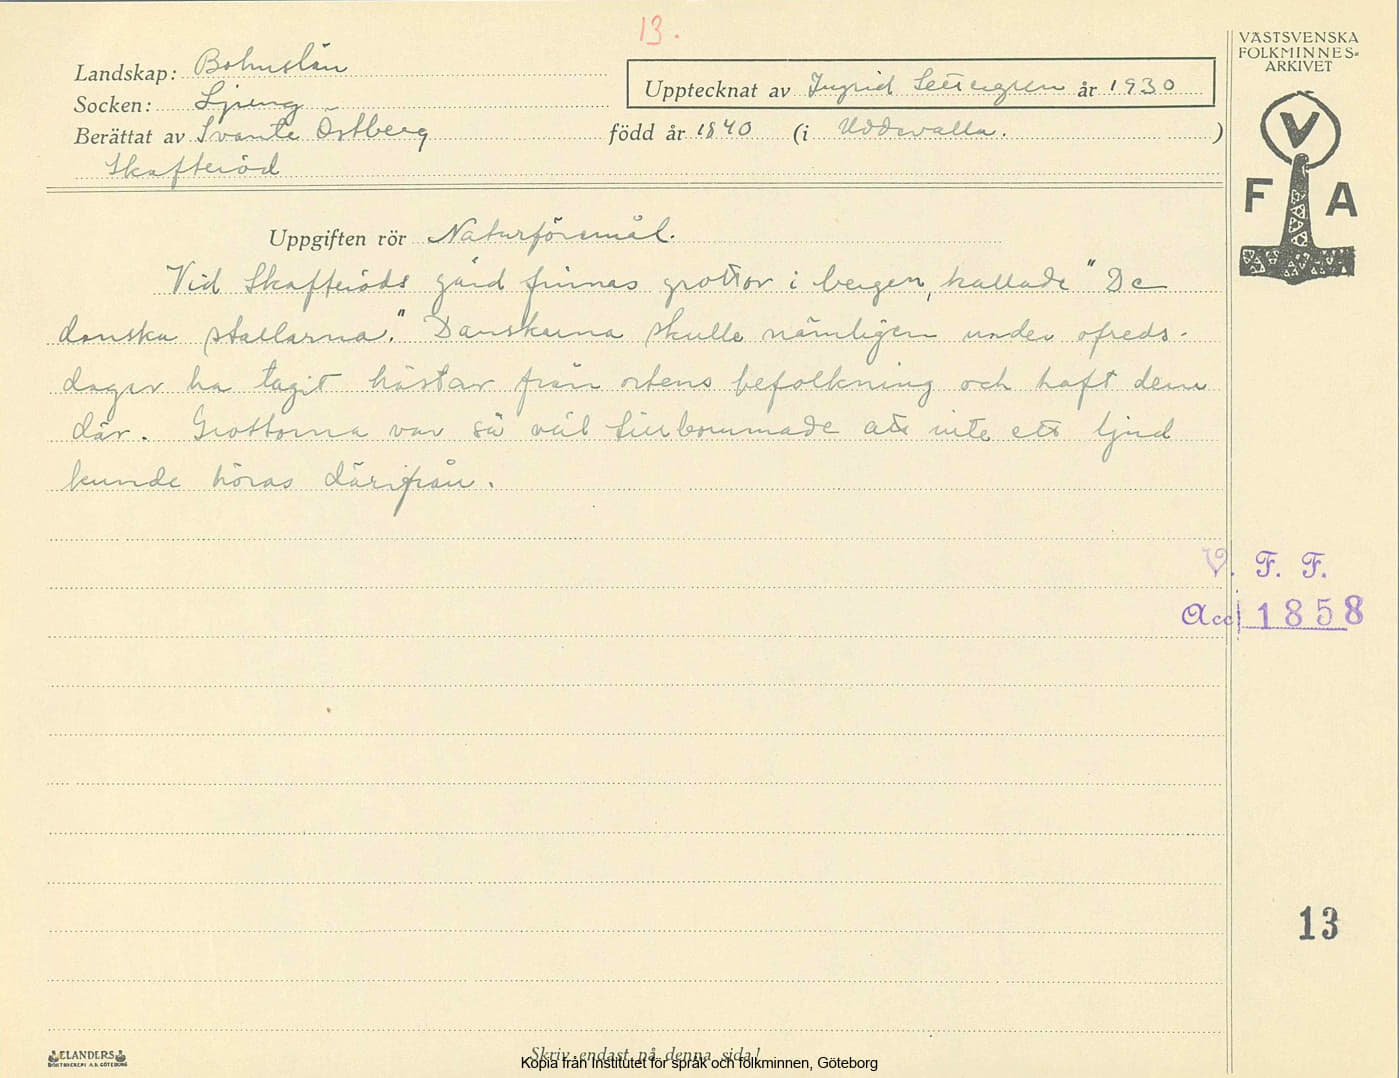 13.
VÄSTSVENSKA
FOLKMINNES-
ARKIVET
Landskap: Bohuslän
Upptecknat av Ingrid Settergren år 1930
Socken: Ljung
Berättat av Svante Östberg född år 1840 (i Uddevalla. )
Skafteröd
V
F A
Uppgiften rör Naturföremål.
Vid Skafteröds gård finnas grottor i bergen, kallade "De
danska stallarna." Danskarna skulle nämligen under ofreds-
dagar ha tagit hästar från ortens befolkning och haft dem
där. Grottorna var så väl tillbommade att inte ett ljud
kunde höras därifrån.
V. F. F.
Acc 1858
13
ELANDERS
BOKTRYCKERI A.B. GÖTEBORG
Skriv endast på denna sida!
Kopia från Institutet för språk och folkminnen, Göteborg